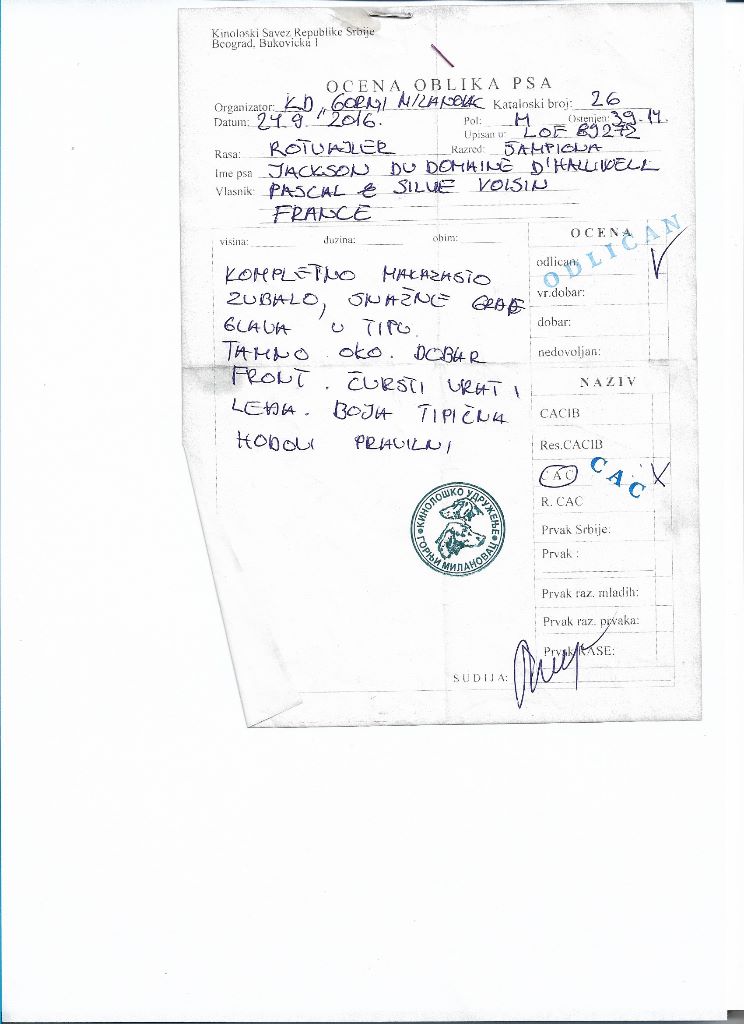 Kinoloski Savez Republike Srbije
Beograd, Bukovicka 1
OCENA OBLIKA PSA
Organizator: KD "GORNJI MILANOVAC Kataloski broj: 26
Datum: 24.9. 2016. Pol: M Ostenjen: 3.9.14.
Upisan u: LOF 89272
Rasa: ROTVAJLER Razred: ŠAMPIONA
Ime psa JACKSON DU DOMAINE D'HALLIWELL
Vlasnik: PASCAL & SILVIE VOISIN
FRANCE
visina: duzina: obim:
KOMPLETNO MAKAZASTO
ZUBALO, SNAŽNE GRAĐE
GLAVA U TIPU.
TAMNO OKO. DOBAR
FRONT. ČVRSTI VRAT I
LEĐA. BOJA TIPIČNA
HODOVI PRAVILNI
OCENA
odlican: ODLICAN
vr.dobar:
dobar:
nedovoljan:
NAZIV
CACIB
Res.CACIB
CAC CAC X
R. CAC
Prvak Srbije:
Prvak :
Prvak raz. mladih:
Prvak raz. prvaka:
Prvak RASE:
КИНОЛОШКО УДРУЖЕЊЕ
ГОРЊИ МИЛАНОВАЦ
SUDIJA: